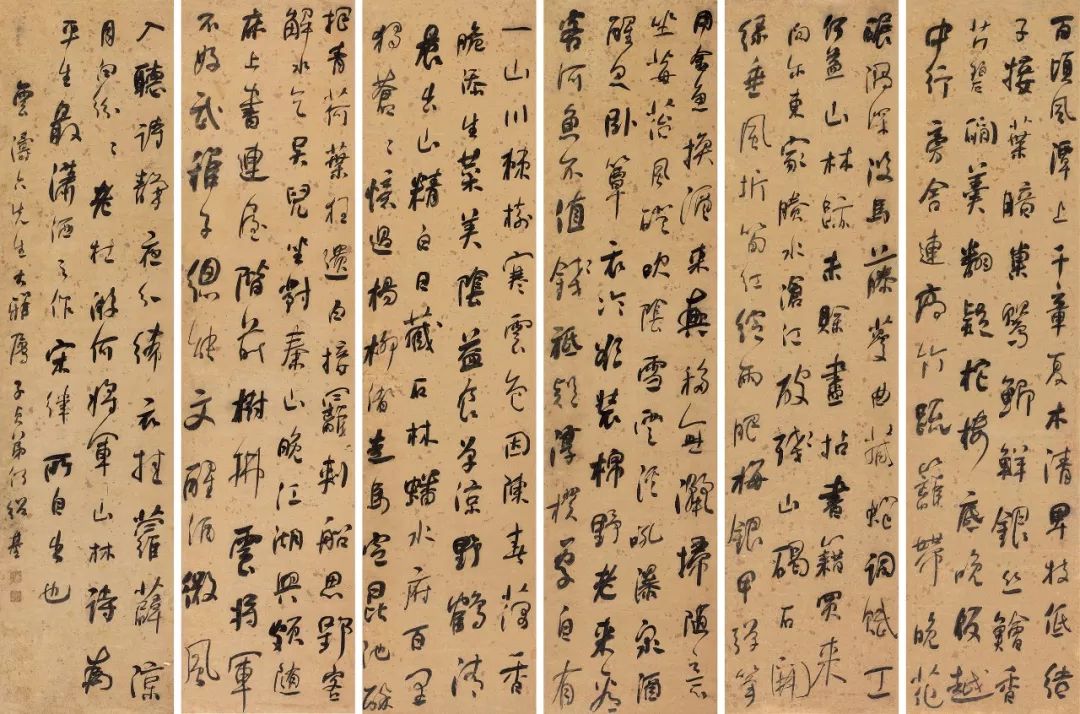 百頃風潭上千章夏木清卑枝低結
子接葉暗巢鶯鯽鮮銀絲鱠香
芹碧澗羹翻疑柁樓底晚飯越
中行旁舍連高竹疏籬帶晚花
碾渦深沒馬藤蔓曲藏蛇詞賦工
何益山林跡未賒盡拈書籍買來
向尔東家賸水滄江破殘山碣石開
綠垂風折筍紅綻雨肥梅銀甲彈箏
用金魚換酒來興移無灑掃隨意
坐莓苔風磴吹陰雪雲門吼瀑泉酒
醒思臥簟衣冷欲裝棉野老來看
客河魚不值錢祗疑淳樸處自有
一山川棘樹寒雲色因陳春藕香
脆添生菜美陰益食單涼野鶴清
晨出山精白日藏石林蟠水府百里
獨蒼〻憶過楊柳渚走馬定昆池醉
把青荷葉狂遺白接䍦刺船思郢客
解水乞吳兒坐對秦山晚江湖興頗隨
床上書連屋階前樹拂雲將軍
不好武稚子總能文醒酒微風
入聽詩靜夜分絺衣挂蘿薜涼
月白紛〻老杜游何將軍山林詩為
平生最瀟洒之作宋律所自出也
雲濤六先生大雅屬子貞弟何紹基